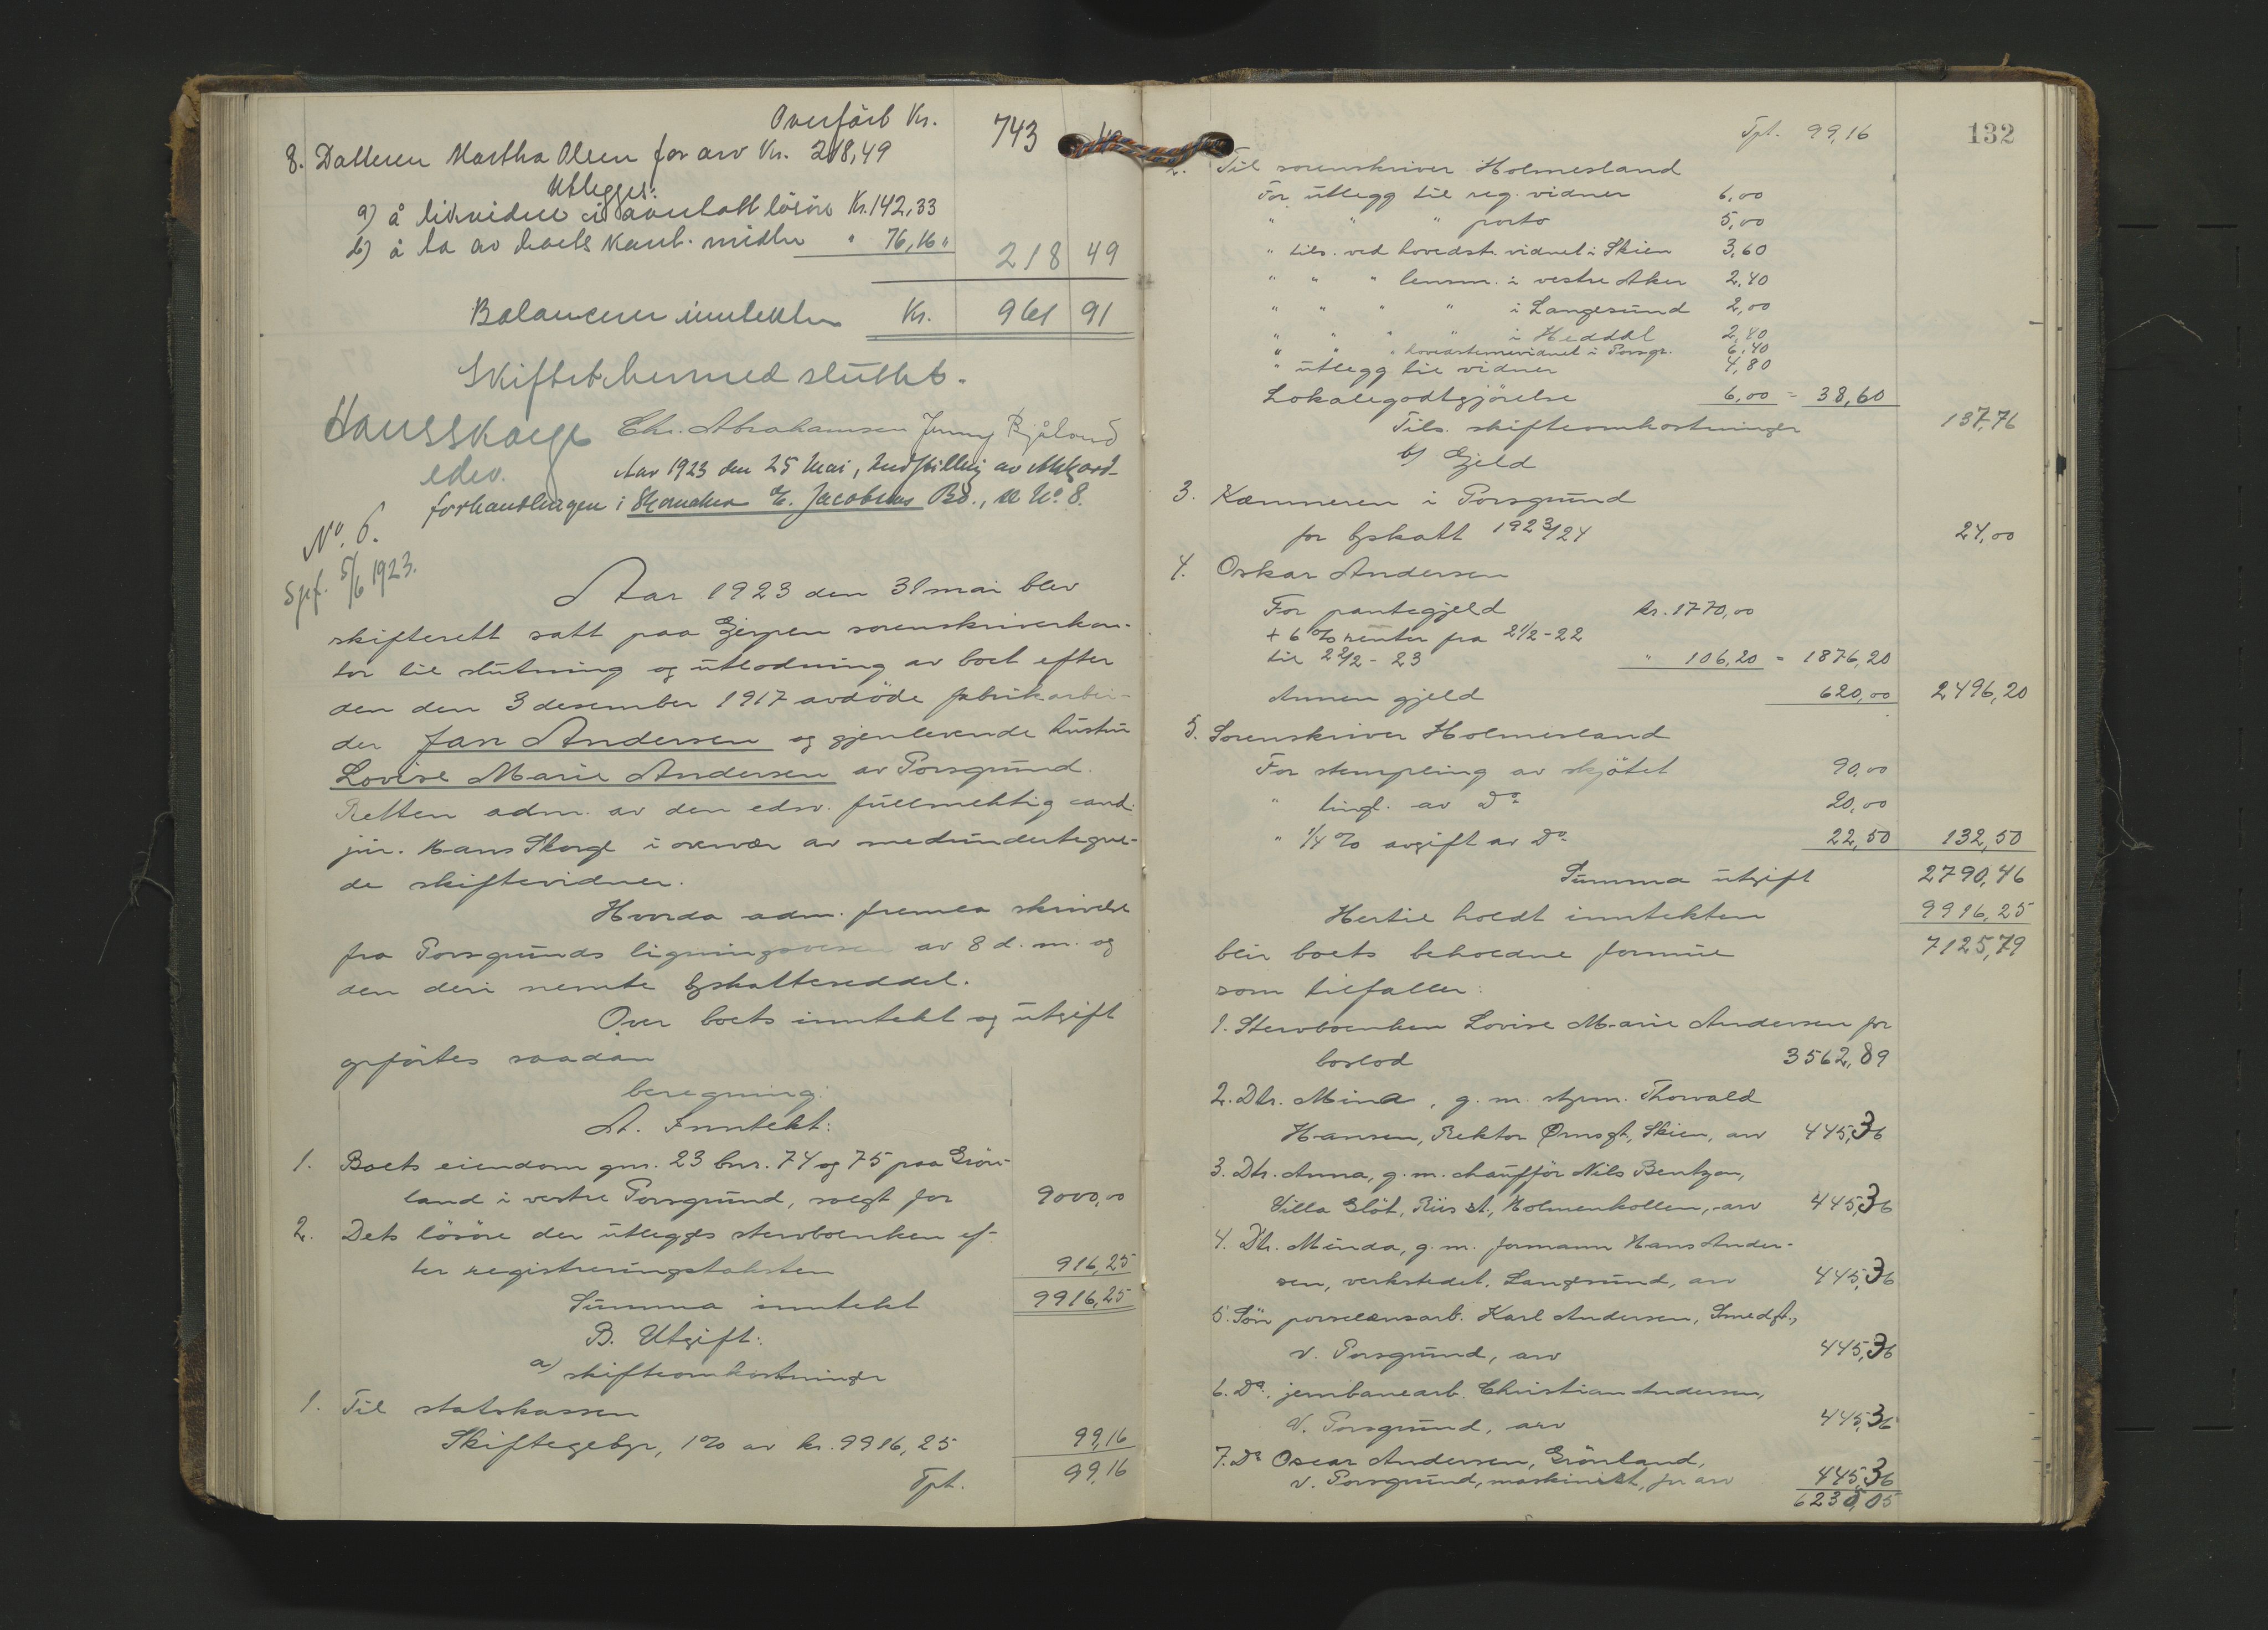 Overført Kr. 743
8. Datteren Martha Olsen for arv Kr. 218,49
Utlegges:
a) å likvidere i avertatt løsøre Kr. 142,33
b) å ta av boets kont. midler " 76,16 " 218 49
Balancerer inntekten Kr. 961 91
Skiftet hermed sluttet.
Hans Skorge Chr. Abrahamsen Jenny Bjåland
edsv.
Aar 1923 den 25 Mai, Indstilling av Akkord-
forhandlingen i E. Jacobsens Bo, No. 8.
No. 6.
Spf. 5/6 1923.
Aar 1923 den 31 mai blev
skifterett satt paa Gjerpen sorenskriverkon-
tor til slutning og utlodning av boet efter
den den 3 desember 1917 avdöde fabrikarbei-
der Jan Andersen og gjenlevende hustru
Lovise Marie Andersen av Porsgrund.
Retten adm. av den edsv. fullmektig cand.
jur. Hans Skorge i overvær av medundertegne-
de skiftevidner.
Hvorda adm. fremla skrivelse
fra Porsgrunds ligningsvesen av 8 d. m. og
den deri nevnte byskatteseddel.
Over boets inntekt og utgift
opförtes saadan
beregning:
A. Inntekt:
1. Boets eiendom gnr. 23 bnr. 74 og 75 paa Grön-
land i vestre Porsgrund, solgt for 9000,00
2. Dets lösöre der utlegges stervboenken ef-
ter registreringstaksten 916,25
Summa inntekt 9916,25
B. Utgift:
a) skifteomkostninger
1. Til statskassen
Skiftegebyr, 1% av kr. 9916,25 99,16
Tpt. 99,16
132
Tpt. 99,16
2. Til sorenskriver Holmesland
For utlegg til reg. vidner 6,00
" " " porto 5,00
" tils. ved hovedst. vidnet i Skien 3,60
" " " lensm. i vestre Aker 2,40
" " " " i Langesund 2,00
" " " " i Heddal 2,40
" " " hovedstevnevidnet i Porsgr. 6,40
" utlegg til vidner 4,80
Lokalegodtgjörelse 6,00 = 38,60
Tils. skifteomkostninger 137,76
b) Gjeld
3. Kæmneren i Porsgrund
for byskatt 1923/24 24,00
4. Oskar Andersen
For pantegjeld kr. 1770,00
+ 6% renter fra 21/2-22
til 22/2-23 " 106,20 = 1876,20
Annen gjeld 620,00 2496,20
5. Sorenskriver Holmesland
For stempling av skjötet 90,00
" tingl. av Do 20,00
" 1/4% avgift av Do 22,50 132,50
Summa utgift 2790,46
Hertil holdt inntekten 9916,25
blir boets beholdne formue 7125,79
som tilfaller:
1. Stervboenken Lovise Marie Andersen for
boslod 3562,89
2. Dtr. Mina, g. m. styrm. Thorvald
Hansen, Rektor Ørnsgt, Skien, arv 445,36
3. Dtr. Anna, g. m. chaufför Nils Bentzon,
Villa Glöt, Riis st., Holmenkollen, arv 445,36
4. Dtr. Minda, g. m. formann Hans Ander-
sen, verkstedet, Langesund, arv 445,36
5. Sön porselænsarb. Karl Andersen, Smedgt.,
v. Porsgrund, arv 445,36
6. Do. jernbanearb. Christian Andersen,
V. Porsgrund, arv 445,36
7. Do Oscar Andersen, Grönland,
v. Porsgrund, maskinist, for arv 445,36
6235,05